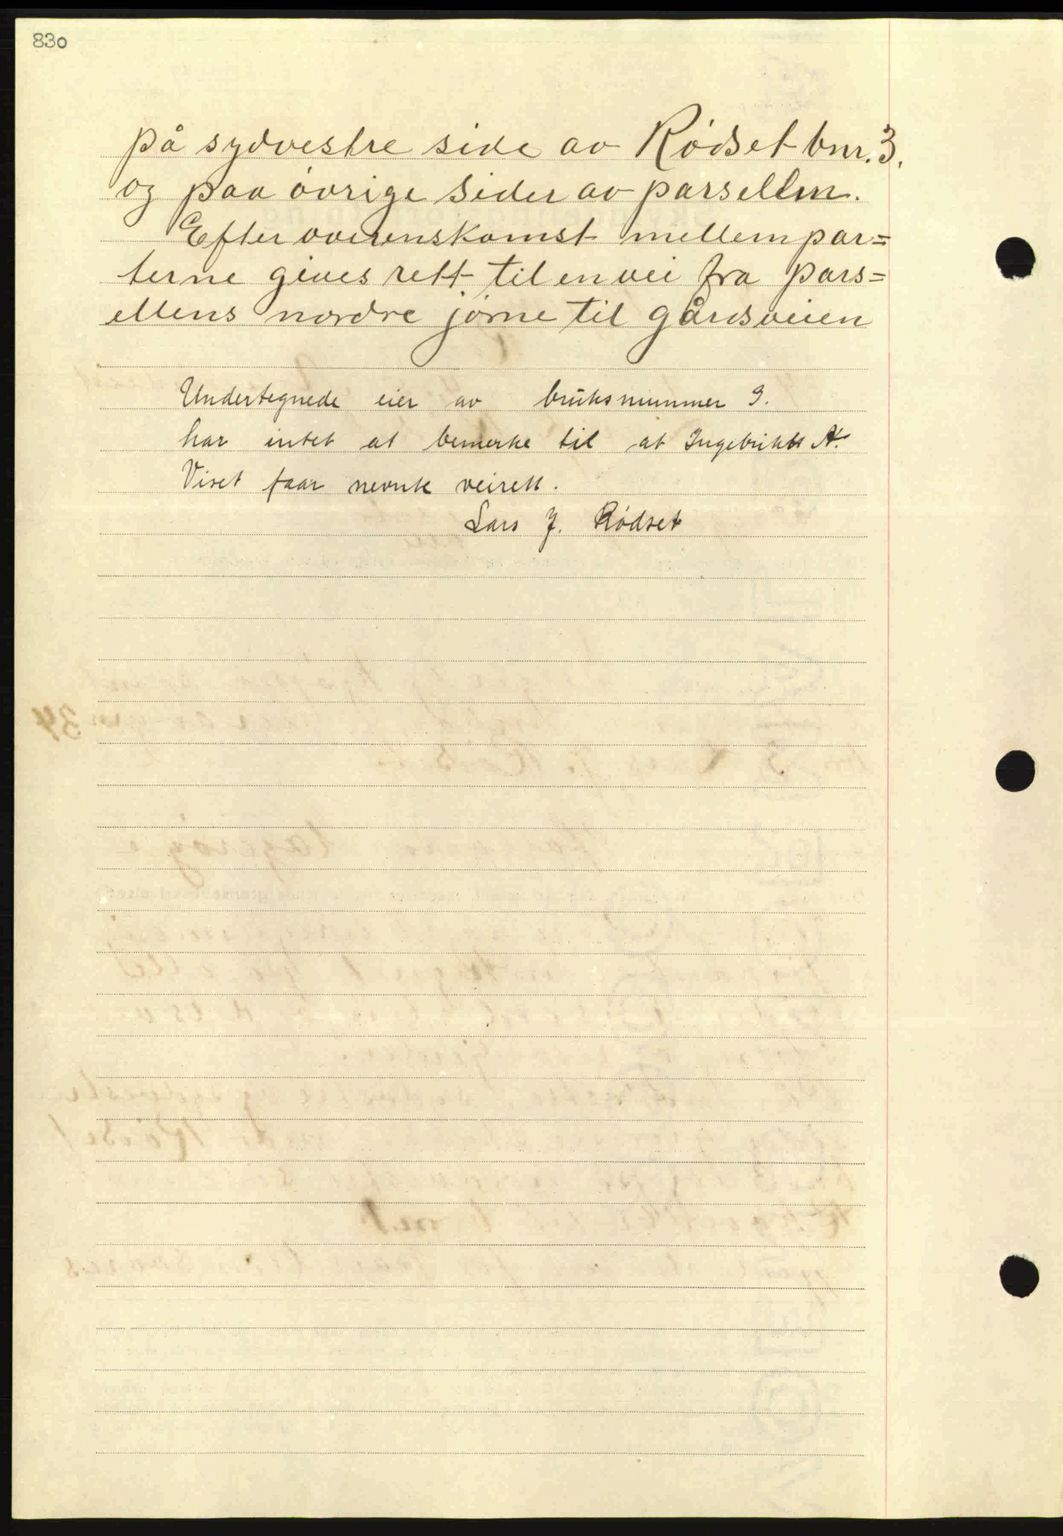 830
på sydvestre side av Rødset bnr. 3.
og paa övrige sider av parsellen.
Efter overenskomst mellem par=
terne gives rett til en vei fra pars=
ellens nordre jörne til gårdsveien
Undertegnede eier av bruksnummer 3.
har intet at bemerke til at Ingebrikt A.
Viset faar nevnte veirett.
Lars J. Rödset